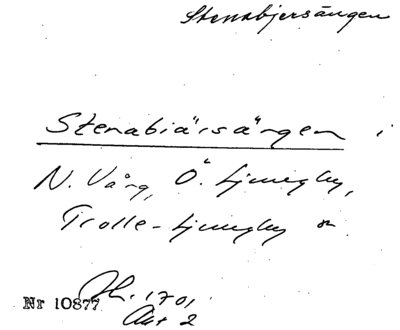 Stenabjersängen
Stenabiärsängen i
N. Vång, Ö. Ljungby,
Trolle-Ljungby sn
Nr 10877
1701
Akt 2